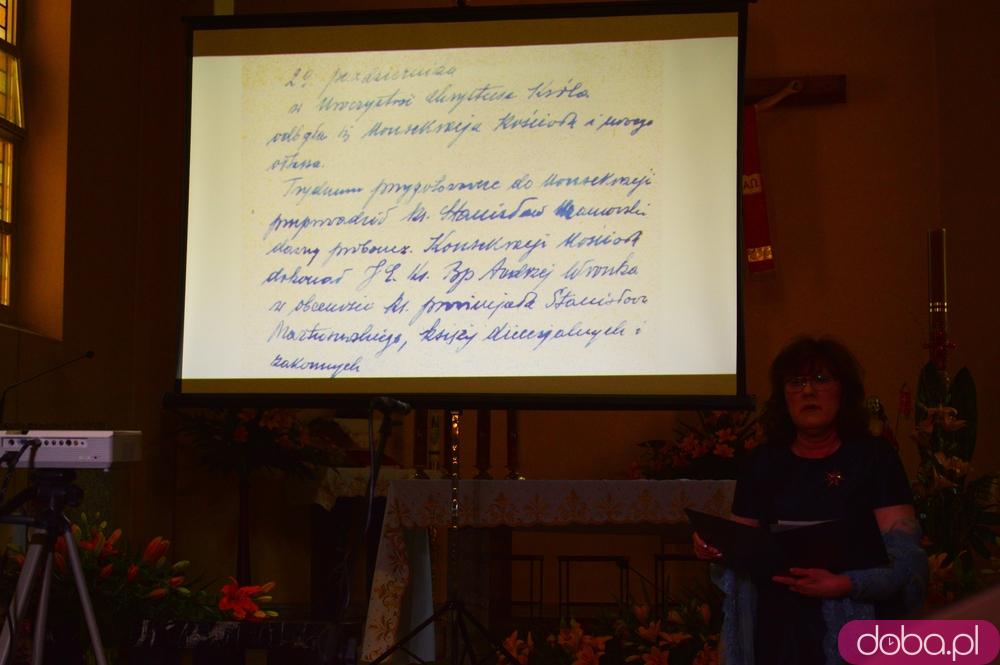 29 października
w Uroczystość Chrystusa Króla
odbyła się Konsekracja Kościoła i nowego
ołtarza.
Tryduum przygotowawcze do Konsekracji
przeprowadził ks. Stanisław
dawny proboszcz. Konsekracji Kościoła
dokonał J.E. ks. Bp Andrzej Wronka
w obecności ks. prowincjała Stanisława
księży diecezjalnych i
zakonnych
ΑΩ
doba.pl